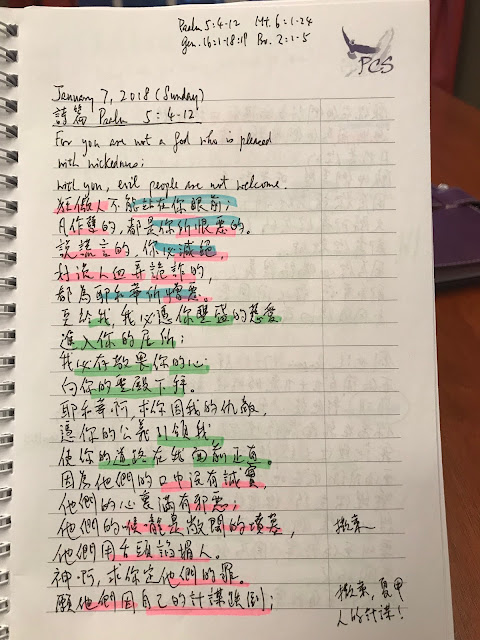 Psalm 5:4-12 Mt. 6:1-24
Gen. 16:1-18:19 Prv. 2:1-5
PCS
January 7, 2018 (Sunday)
詩篇 Psalm 5:4-12
For you are not a God who is pleased
with wickedness;
with you, evil people are not welcome.
狂傲人不能站在你眼前;
凡作孽的,都是你所恨惡的。
說謊言的,你必滅絕,
好流人血弄詭詐的,
都為耶和華所憎惡。
至於我,我必憑你豐盛的慈愛
進入你的居所;
我必存敬畏你的心
向你的聖殿下拜。
耶和華啊,求你因我的仇敵,
憑你的公義引領我,
使你的道路在我面前正直。
因為他們的口中沒有誠實,
他們的心裏滿有邪惡;
他們的喉嚨是敞開的墳墓,
撒萊
他們用舌頭諂媚人。
神啊,求你定他們的罪。
願他們因自己的計謀跌倒;
撒萊,夏甲
人的計謀!